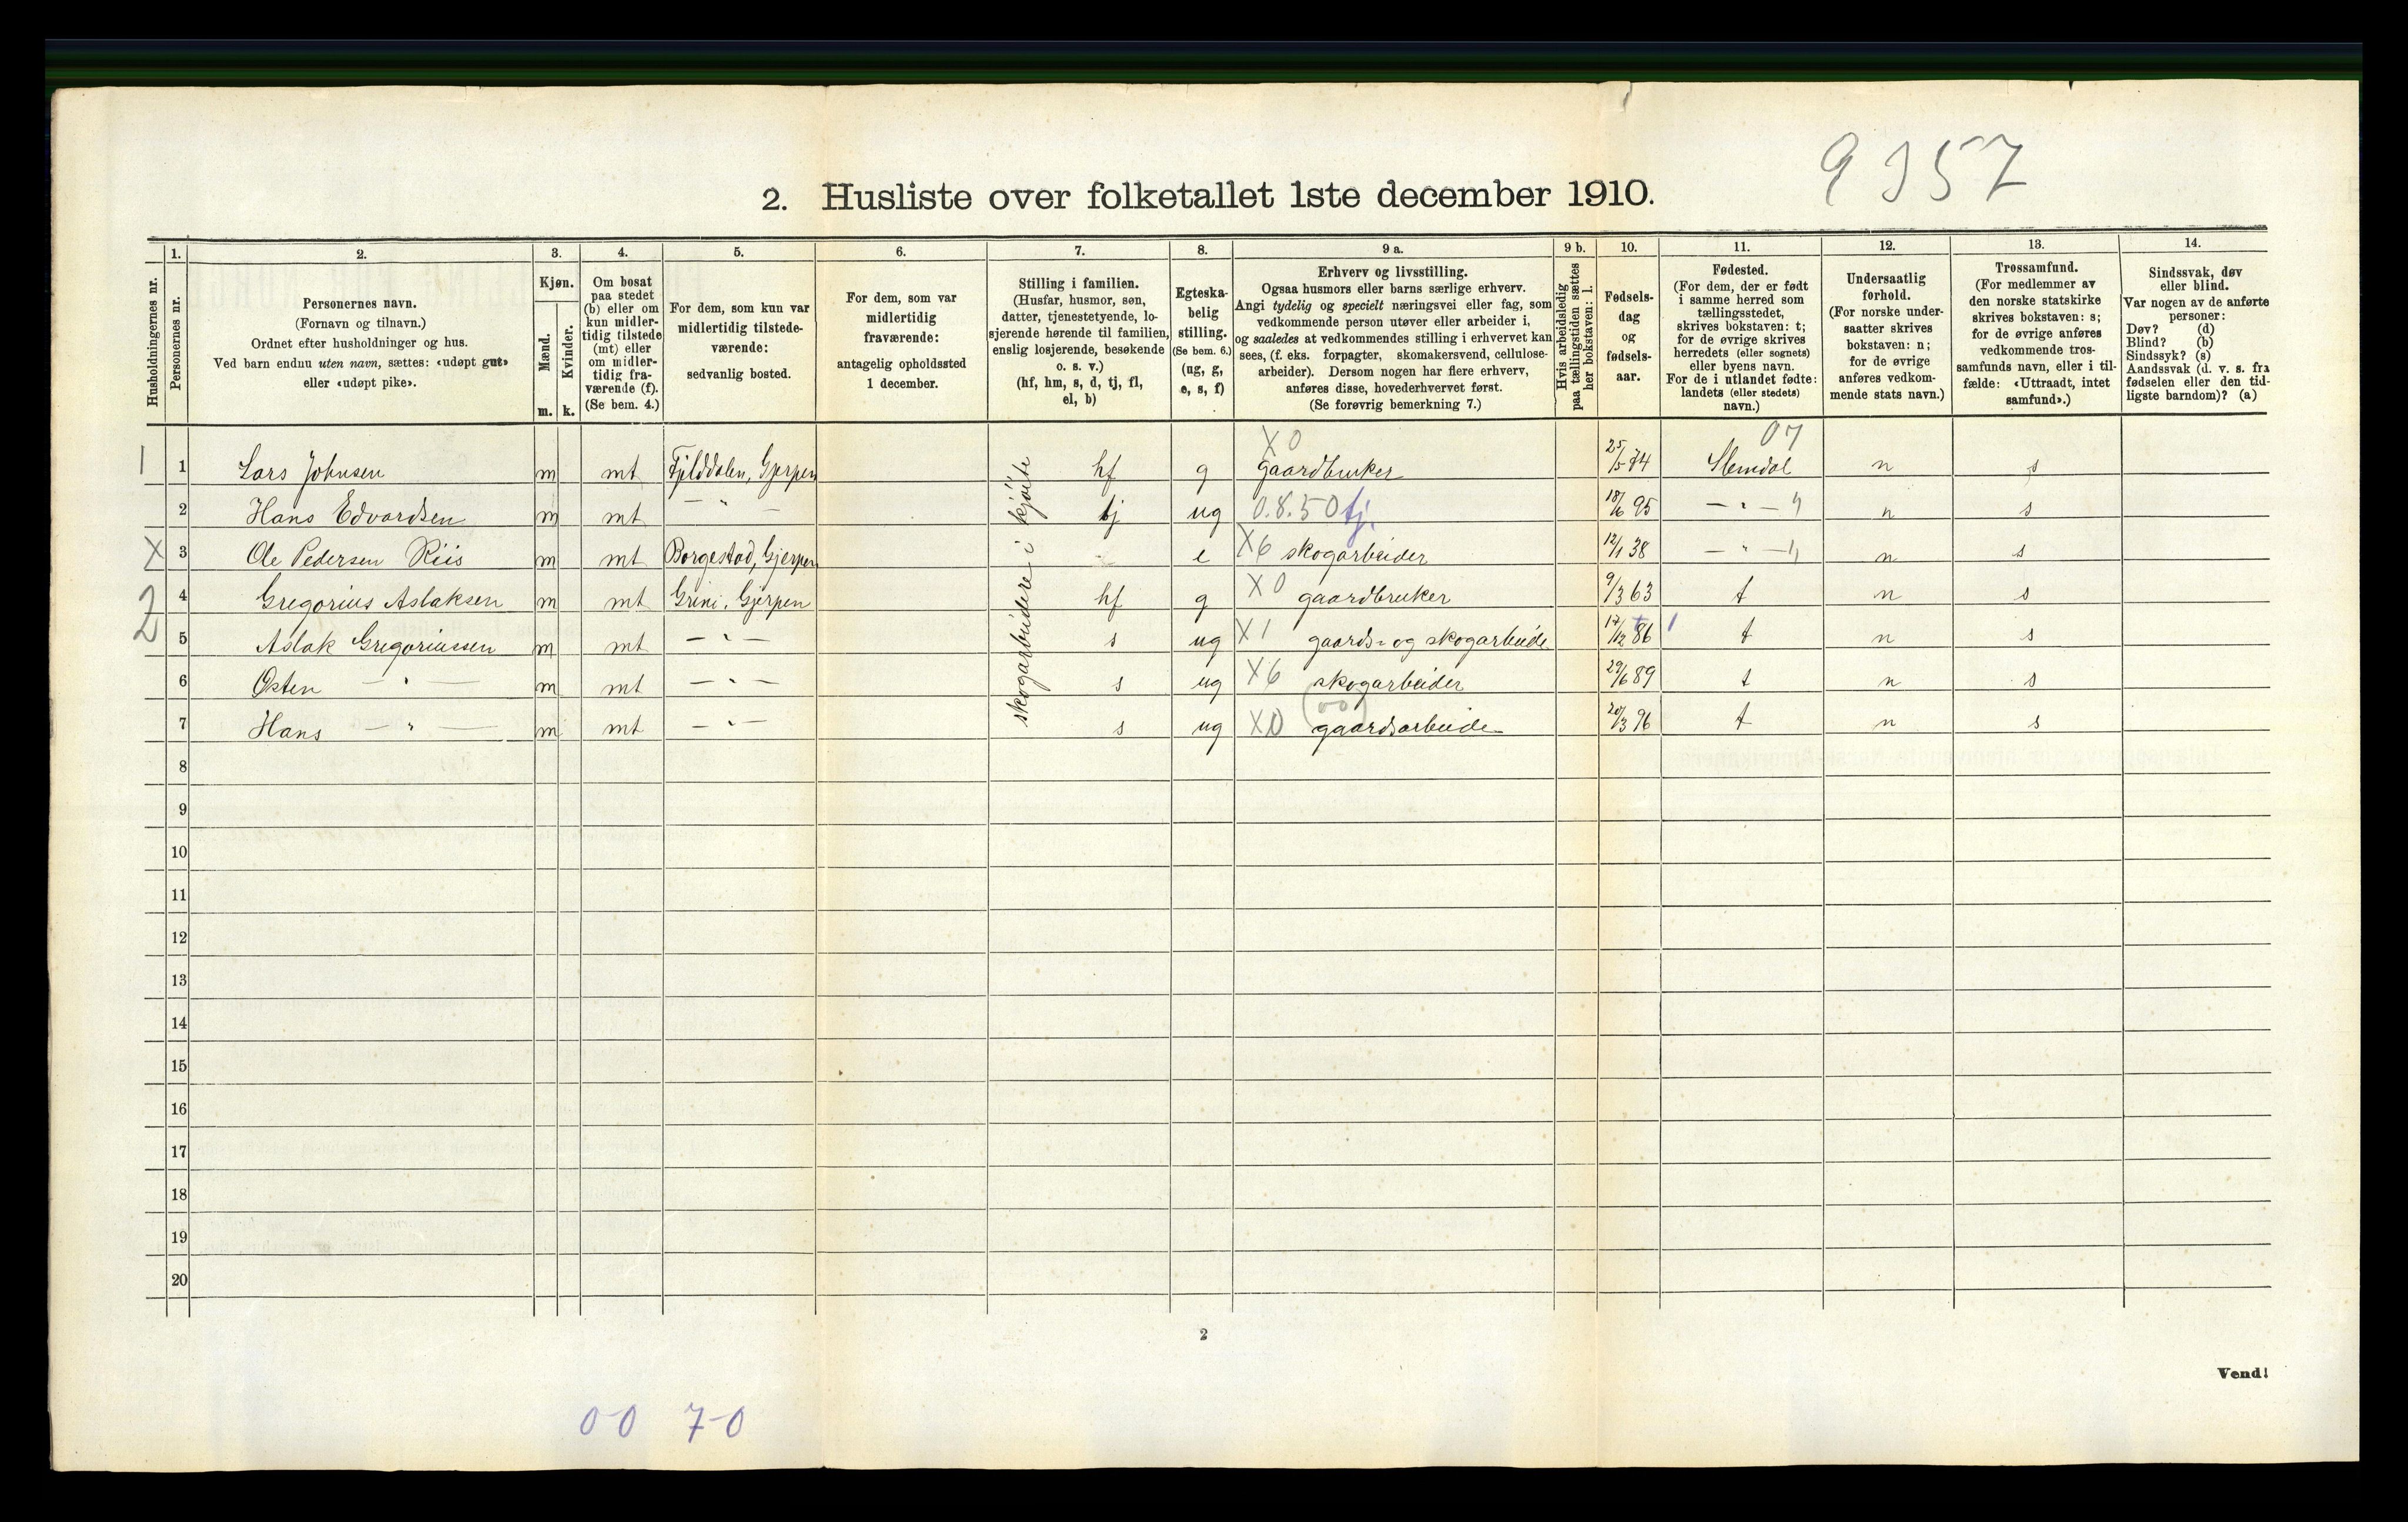 9357
2. Husliste over folketallet 1ste december 1910.
Husholdningernes nr.
1. Personernes nr.
2. Personernes navn.
(Fornavn og tilnavn.)
Ordnet efter husholdninger og hus.
Ved barn endnu uten navn, sættes: «udøpt gut»
eller «udøpt pike».
3. Kjøn.
Mænd. m.
Kvinder. k.
4. Om bosat
paa stedet
(b) eller om
kun midler-
tidig tilstede
(mt) eller
om midler-
tidig fra-
værende (f).
(Se bem. 4.)
5. For dem, som kun var
midlertidig tilstede-
værende:
sedvanlig bosted.
6. For dem, som var
midlertidig
fraværende:
antagelig opholdssted
1 december.
7. Stilling i familien.
(Husfar, husmor, søn,
datter, tjenestetyende, lo-
sjerende hørende til familien,
enslig losjerende, besøkende
o. s. v.)
(hf, hm, s, d, tj, fl,
el, b)
8. Egteska-
belig
stilling.
(Se bem. 6.)
(ug, g,
e, s, f)
9 a. Erhverv og livsstilling.
Ogsaa husmors eller barns særlige erhverv.
Angi tydelig og specielt næringsvei eller fag, som
vedkommende person utøver eller arbeider i,
og saaledes at vedkommendes stilling i erhvervet kan
sees, (f. eks. forpagter, skomakersvend, cellulose-
arbeider). Dersom nogen har flere erhverv,
anføres disse, hovederhvervet først.
(Se forøvrig bemerkning 7.)
9 b. Hvis arbeidsledig
paa tællingstiden sættes
her bokstaven: l.
10. Fødsels-
dag
og
fødsels-
aar.
11. Fødested.
(For dem, der er født
i samme herred som
tællingsstedet,
skrives bokstaven: t;
for de øvrige skrives
herredets (eller sognets)
eller byens navn.
For de i utlandet fødte:
landets (eller stedets)
navn.)
12. Undersaatlig
forhold.
(For norske under-
saatter skrives
bokstaven: n;
for de øvrige
anføres vedkom-
mende stats navn.)
13. Trossamfund.
(For medlemmer av
den norske statskirke
skrives bokstaven: s;
for de øvrige anføres
vedkommende tros-
samfunds navn, eller i til-
fælde: «Uttraadt, intet
samfund».)
14. Sindssvak, døv
eller blind.
Var nogen av de anførte
personer:
Døv? (d)
Blind? (b)
Sindssyk? (s)
Aandssvak (d. v. s. fra
fødselen eller den tid-
ligste barndom)? (a)
skogarbeidere i kjøite
X0 07
1 1 Lars Johnsen m mt Fjelddalen, Gjerpen hf g gaardbruker 25/5 74 Slemdal n s
2 Hans Edvardsen m mt — " — tj ug 0.8.50 tj. 18/6 95 — " — 4 n s
X 3 Ole Pedersen Riis m mt Borgestad, Gjerpen e X6 skogarbeider 12/1 38 — " — 4 n s
2 4 Gregorius Aslaksen m mt Grini, Gjerpen hf g X0 gaardbruker 9/3 63 t n s
5 Aslak Gregoriussen m mt — " — s ug X1 gaards- og skogarbeide 17/12 86 1 t n s
6 Østen — " — m mt — " — s ug X6 skogarbeider 29/6 89 t n s
(00)
7 Hans — " — m mt — " — s ug X0 gaardsarbeide 20/3 96 t n s
8
9
10
11
12
13
14
15
16
17
18
19
20
2
Vend!
00 70